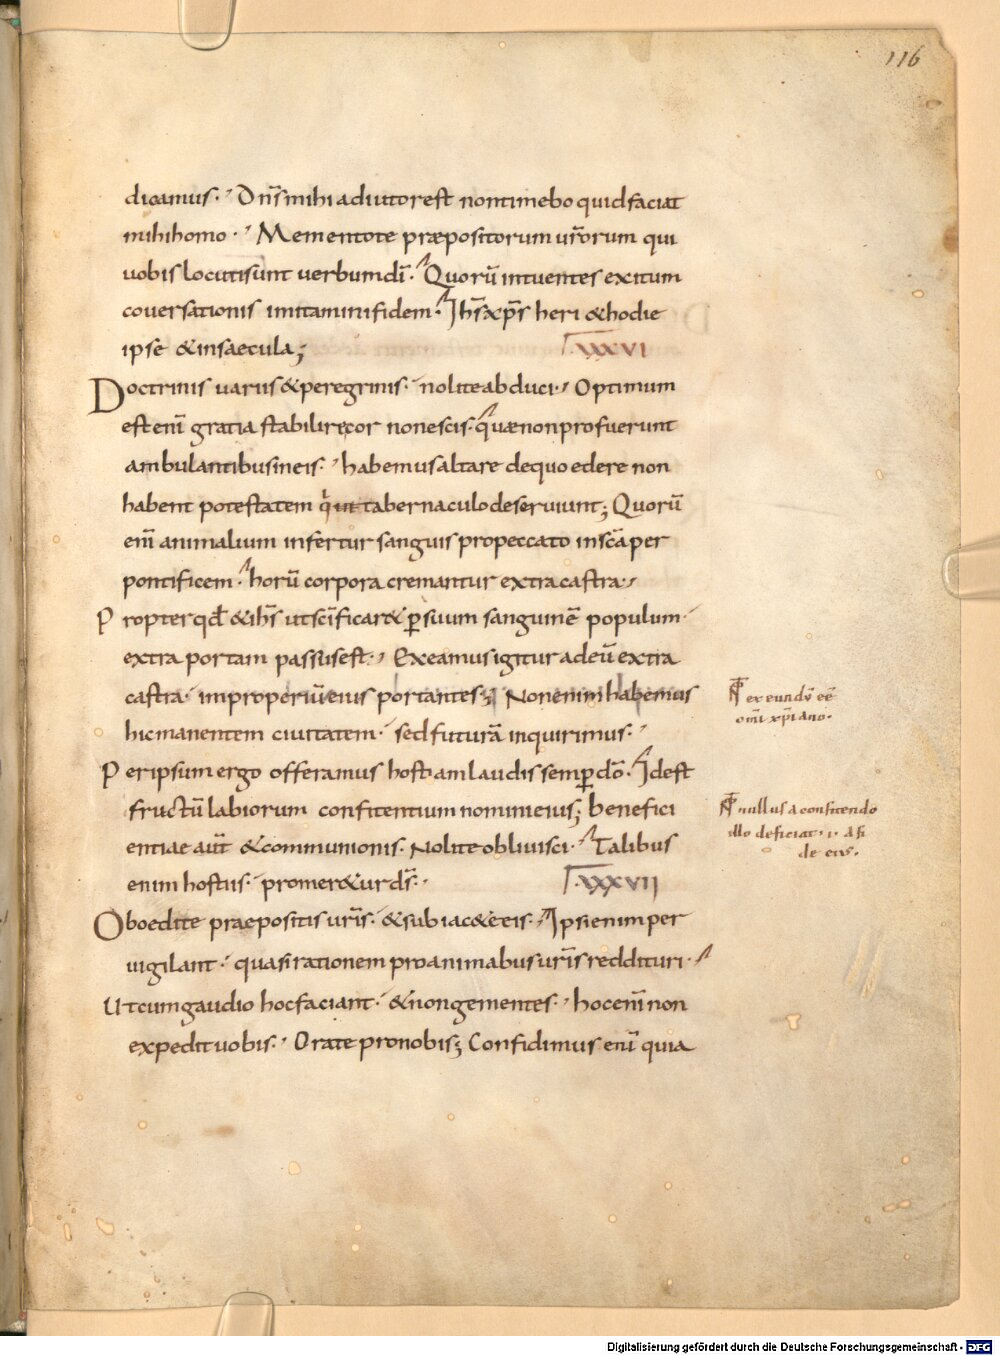 116
dicamus. Dn̄s mihi adiutor est non timebo quid faciat
mihi homo. Mementote præpositorum ur̄orum qui
uobis locuti sunt uerbum dī. Quorū intuentes exitum
couersationis imitamini fidem. Ih̄s xp̄s heri & hodie
ipse & in saecula;
XXXVI
Doctrinis uariis & peregrinis. nolite abduci. Optimum
est enī gratia stabilire cor non escis. quæ non profuerunt
ambulantibus in eis. habemus altare de quo edere non
habent potestatem qui tabernaculo deseruiunt; Quorū
enī animalium infertur sanguis pro peccato in sc̄a per
pontificem. horū corpora cremantur extra castra.
Propter qđ & ih̄s ut sc̄ificar& ꝑ suum sanguinē populum.
extra portam passus est. Exeamus igitur ad eū extra
castra. improperiū eius portantes; Non enim habemus
hic manentem ciuitatem. sed futurā inquirimus.
Per ipsum ergo offeramus hostiam laudis semꝑ dō. Id est
fructū labiorum confitentium nomini eius; benefici
entiae aut̄ & communionis. Nolite obliuisci. Talibus
enim hostiis. promer&ur ds̄.
XXXVII
Oboedite praepositis ur̄is. & subiac&e eis. Ipsi enim per
uigilant. quasi rationem pro animabus ur̄is reddituri.
Ut cum gaudio hoc faciant. & non gementes. hoc enī non
expedit uobis. Orate pro nobis; Confidimus enī quia
exeundū eē
omī xp̄iano.
nullus a confitendo
illo deficiat. i. a fi
de eius.
Digitalisierung gefördert durch die Deutsche Forschungsgemeinschaft - DFG